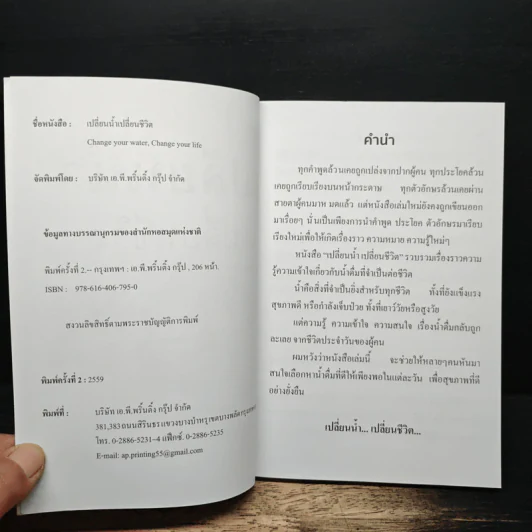 ชื่อหนังสือ : เปลี่ยนน้ำเปลี่ยนชีวิต
Change your water, Change your life
จัดพิมพ์โดย : บริษัท เอ.พี.พริ้นติ้ง กรุ๊ป จำกัด
ข้อมูลทางบรรณานุกรมของสำนักหอสมุดแห่งชาติ
พิมพ์ครั้งที่ 2.-- กรุงเทพฯ : เอ.พี.พริ้นติ้ง กรุ๊ป , 206 หน้า.
ISBN : 978-616-406-795-0
สงวนลิขสิทธิ์ตามพระราชบัญญัติการพิมพ์
พิมพ์ครั้งที่ 2 : 2559
พิมพ์ที่ : บริษัท เอ.พี.พริ้นติ้ง กรุ๊ป จำกัด
381,383 ถนนสิรินธร แขวงบางบำหรุ เขตบางพลัด กรุงเทพฯ
โทร. 0-2886-5231-4 แฟ็กซ์. 0-2886-5235
E-mail: ap.printing55@gmail.com
คำนำ
ทุกคำพูดล้วนเคยถูกเปล่งจากปากผู้คน ทุกประโยคล้วน
เคยถูกเรียบเรียงบนหน้ากระดาษ ทุกตัวอักษรล้วนเคยผ่าน
สายตาผู้คนมาหมดแล้ว แต่หนังสือเล่มใหม่ยังคงถูกเขียนออก
มาเรื่อยๆ นั่นเป็นเพียงการนำคำพูด ประโยค ตัวอักษรมาเรียบ
เรียงใหม่เพื่อให้เกิดเรื่องราว ความหมาย ความรู้ใหม่ๆ
หนังสือ “เปลี่ยนน้ำ เปลี่ยนชีวิต” รวบรวมเรื่องราวความ
รู้ความเข้าใจเกี่ยวกับน้ำดื่มที่จำเป็นต่อชีวิต
น้ำคือสิ่งที่จำเป็นยิ่งสำหรับทุกชีวิต ทั้งที่ยังแข็งแรง
สุขภาพดี หรือกำลังเจ็บป่วย ทั้งที่เยาว์วัยหรือสูงวัย
แต่ความรู้ ความเข้าใจ ความสนใจ เรื่องน้ำดื่มกลับถูก
ละเลย จากชีวิตประจำวันของผู้คน
ผมหวังว่าหนังสือเล่มนี้ จะช่วยให้หลายๆคนหันมา
สนใจเลือกหาน้ำดื่มที่ดีให้เพียงพอในแต่ละวัน เพื่อสุขภาพที่ดี
อย่างยั่งยืน
เปลี่ยนน้ำ... เปลี่ยนชีวิต...